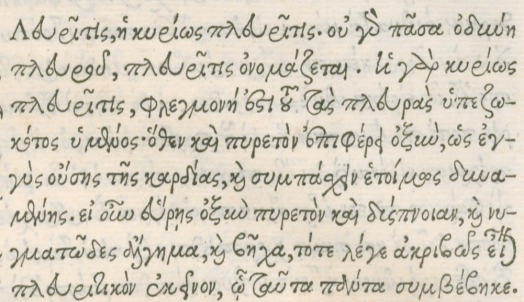 Λευρῖτις, ἡ κυρίως πλευρῖτις. οὐ γὰρ πᾶσα ὀδύνη
πλευροῦ, πλευρῖτις ὀνομάζεται. ἡ γὰρ κυρίως
πλευρῖτις, φλεγμονή ἐστι τοῦ τὰς πλευρὰς ὑπεζω-
κότος ὑμένος· ὅθεν καὶ πυρετὸν ἐπιφέρει ὀξὺν, ὡς ἐγ-
γὺς οὔσης τῆς καρδίας, καὶ συμπάσχειν ἑτοίμως δυνα-
μένης. εἰ οὖν εὕρῃς ὀξὺν πυρετὸν καὶ δύσπνοιαν, καὶ νυ-
γματῶδες ἄλγημα, καὶ βῆχα, τότε λέγε ἀκριβῶς εἶναι
πλευριτικὸν ἐκεῖνον, ᾧ ταῦτα πάντα συμβέβηκε.